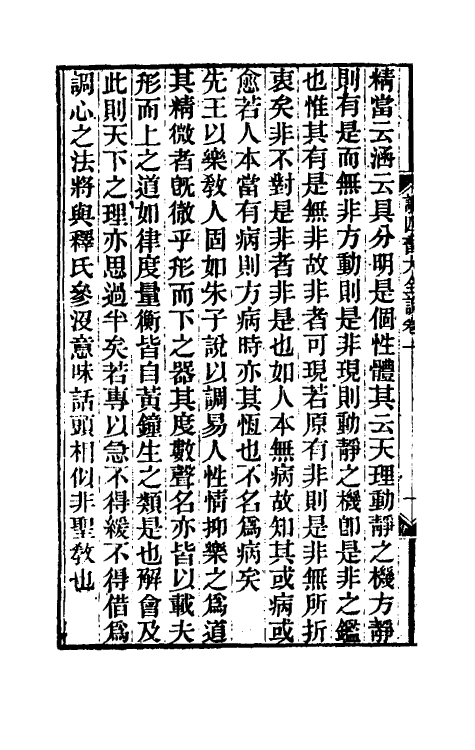 讀四書大全說卷十
精當云涵云具分明是個性體其云天理動靜之機方靜
則有是而無非方動則是非現則動靜之機卽是非之鑑
也惟其有是無非故非者可現若原有非則是非無所折
衷矣非不對是非者非是也如人本無病故知其或病或
愈若人本當有病則方病時亦其恆也不名爲病矣
先王以樂敎人固如朱子說以調易人性情抑樂之爲道
其精微者旣徹乎形而下之器其度數聲名亦皆以載夫
形而上之道如律度量衡皆自黃鐘生之類是也解會及
此則天下之理亦思過半矣若專以急不得緩不得借爲
調心之法將與釋氏參沒意味話頭相似非聖敎也